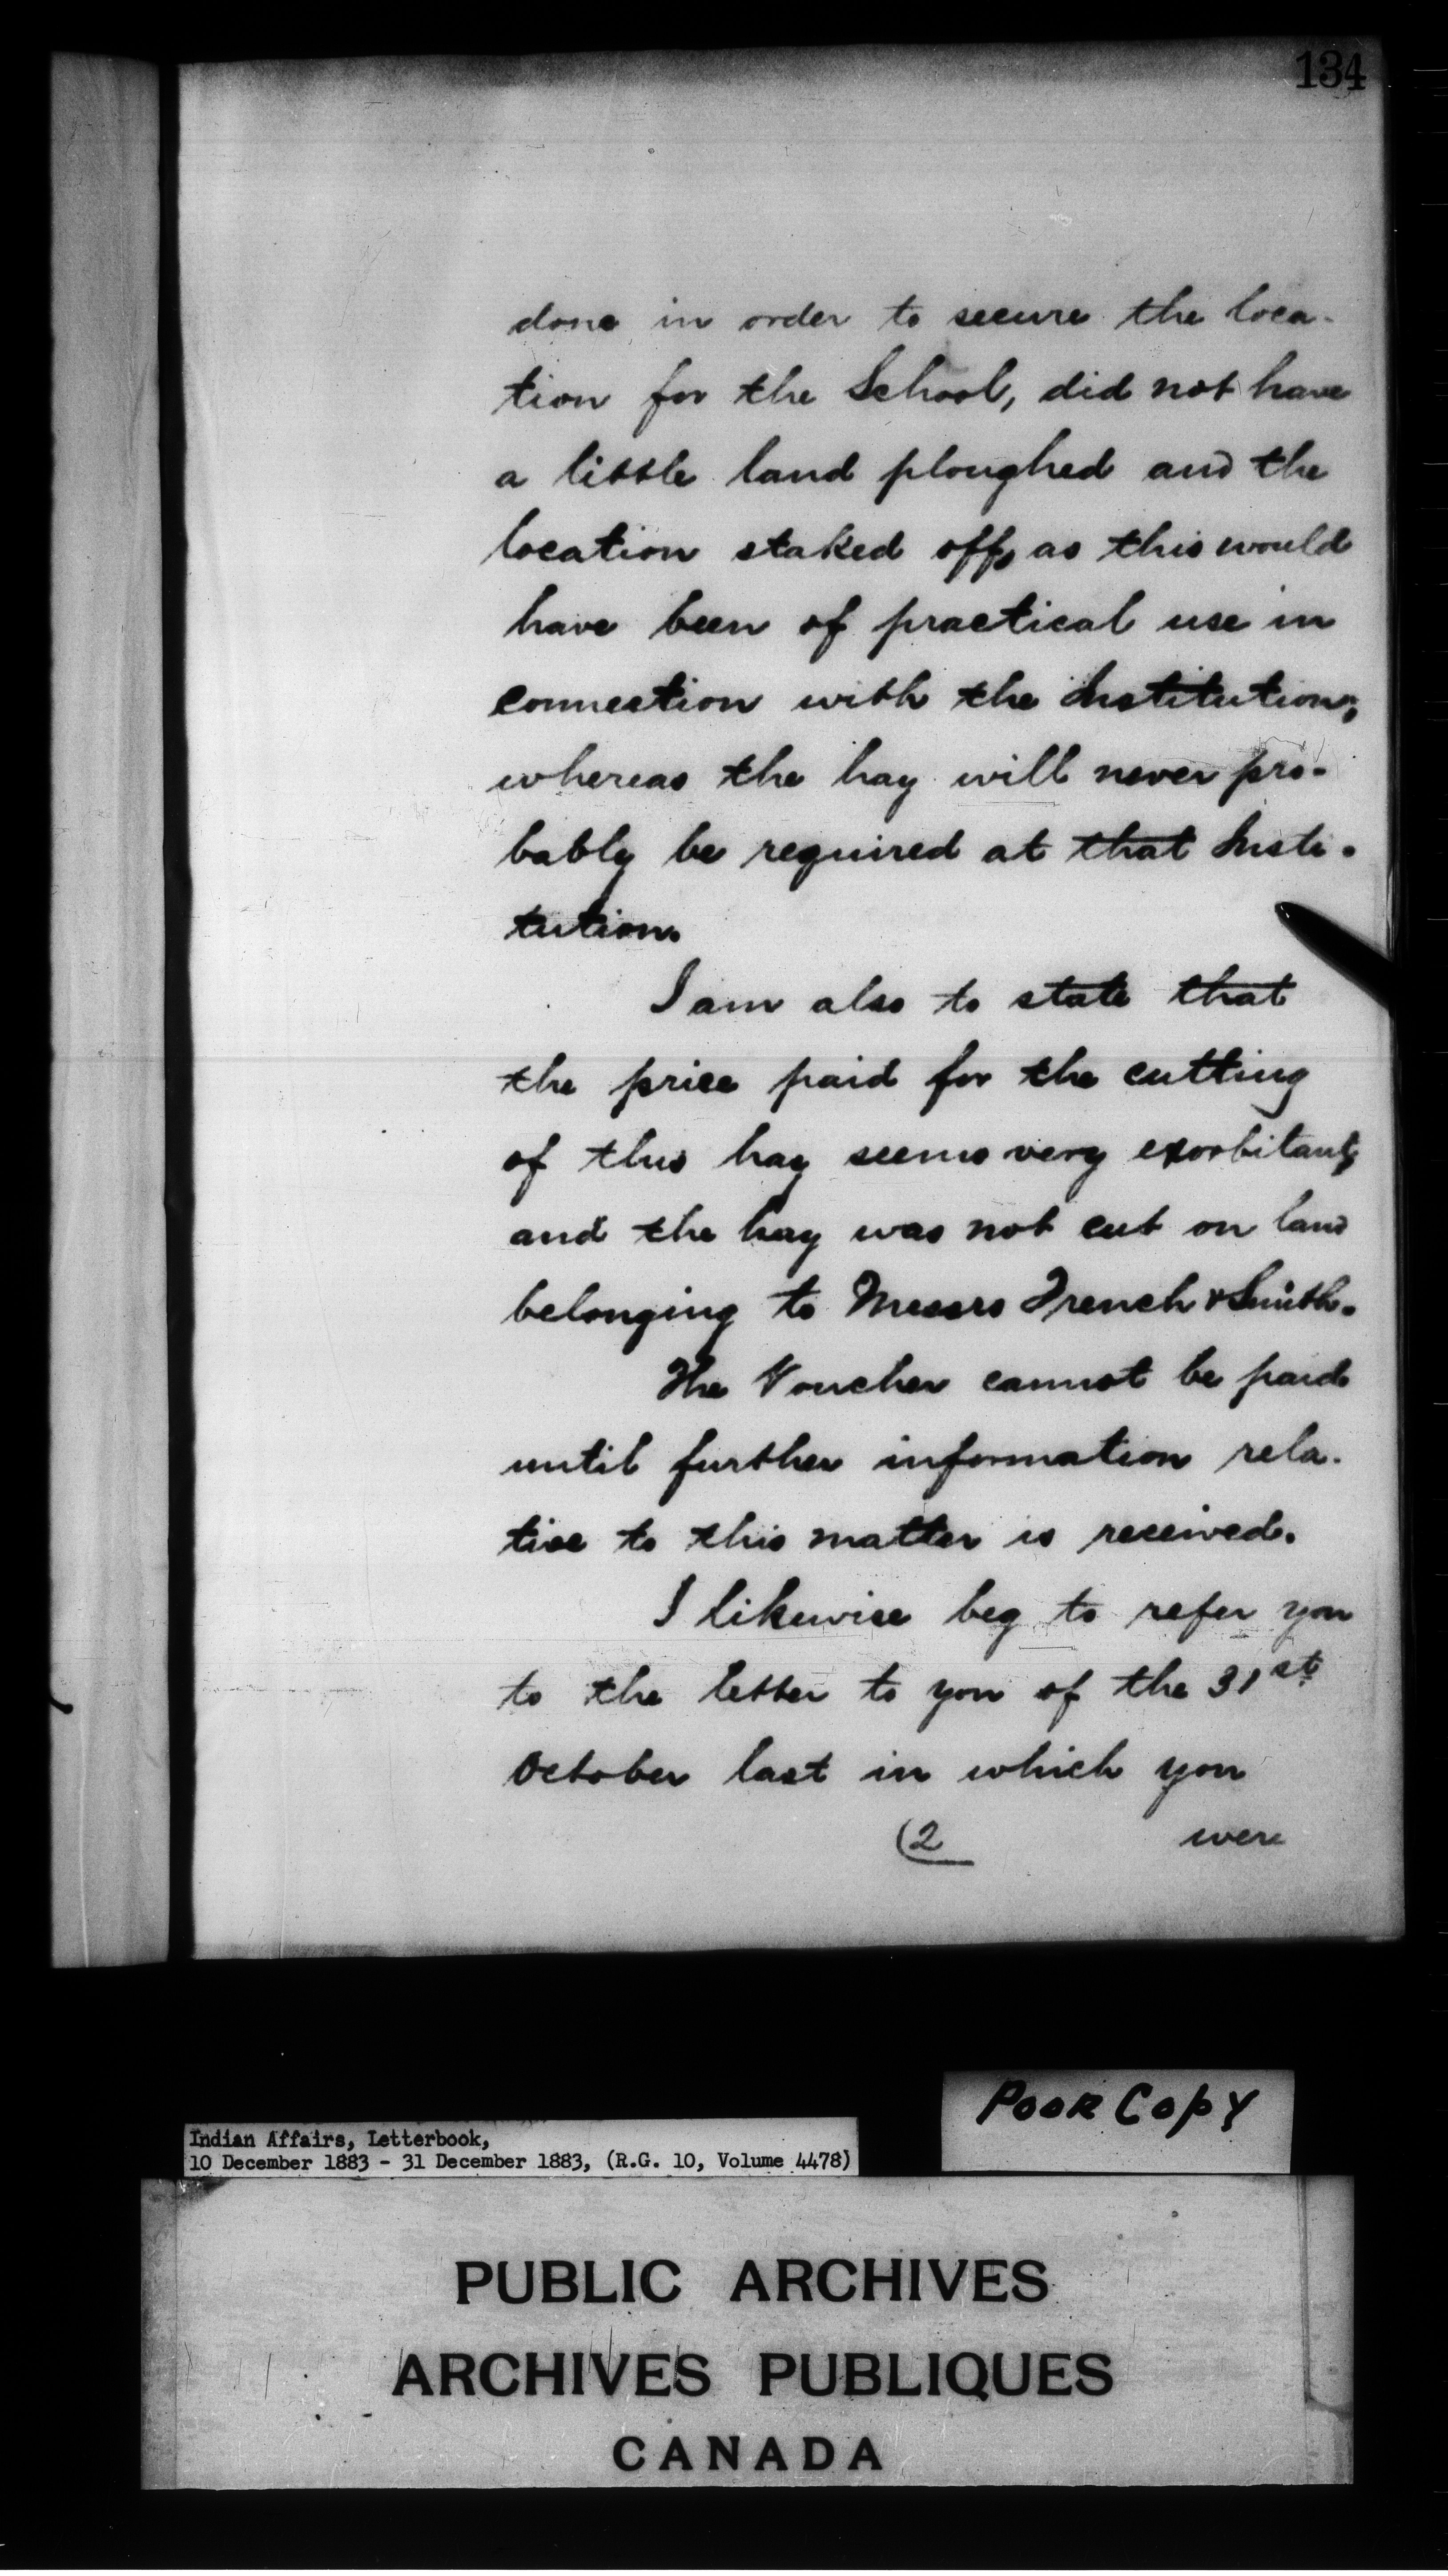 134
done in order to secure the loca-
tion for the School, did not have
a little land ploughed and the
location staked off, as this would
have been of practical use in
connection with the Institution;
whereas the hay will never pro-
bably be required at that Insti-
tution.
I am also to state that
the price paid for the cutting
of this hay seems very exorbitant,
and the hay was not cut on land
belonging to Messrs French & Smith.
The Voucher cannot be paid
until further information rela-
tive to this matter is received.
I likewise beg to refer you
to the letter to you of the 31st
October last in which you
(2 were
POOR COPY
Indian Affairs, Letterbook,
10 December 1883 - 31 December 1883, (R.G. 10, Volume 4478)
PUBLIC ARCHIVES
ARCHIVES PUBLIQUES
CANADA